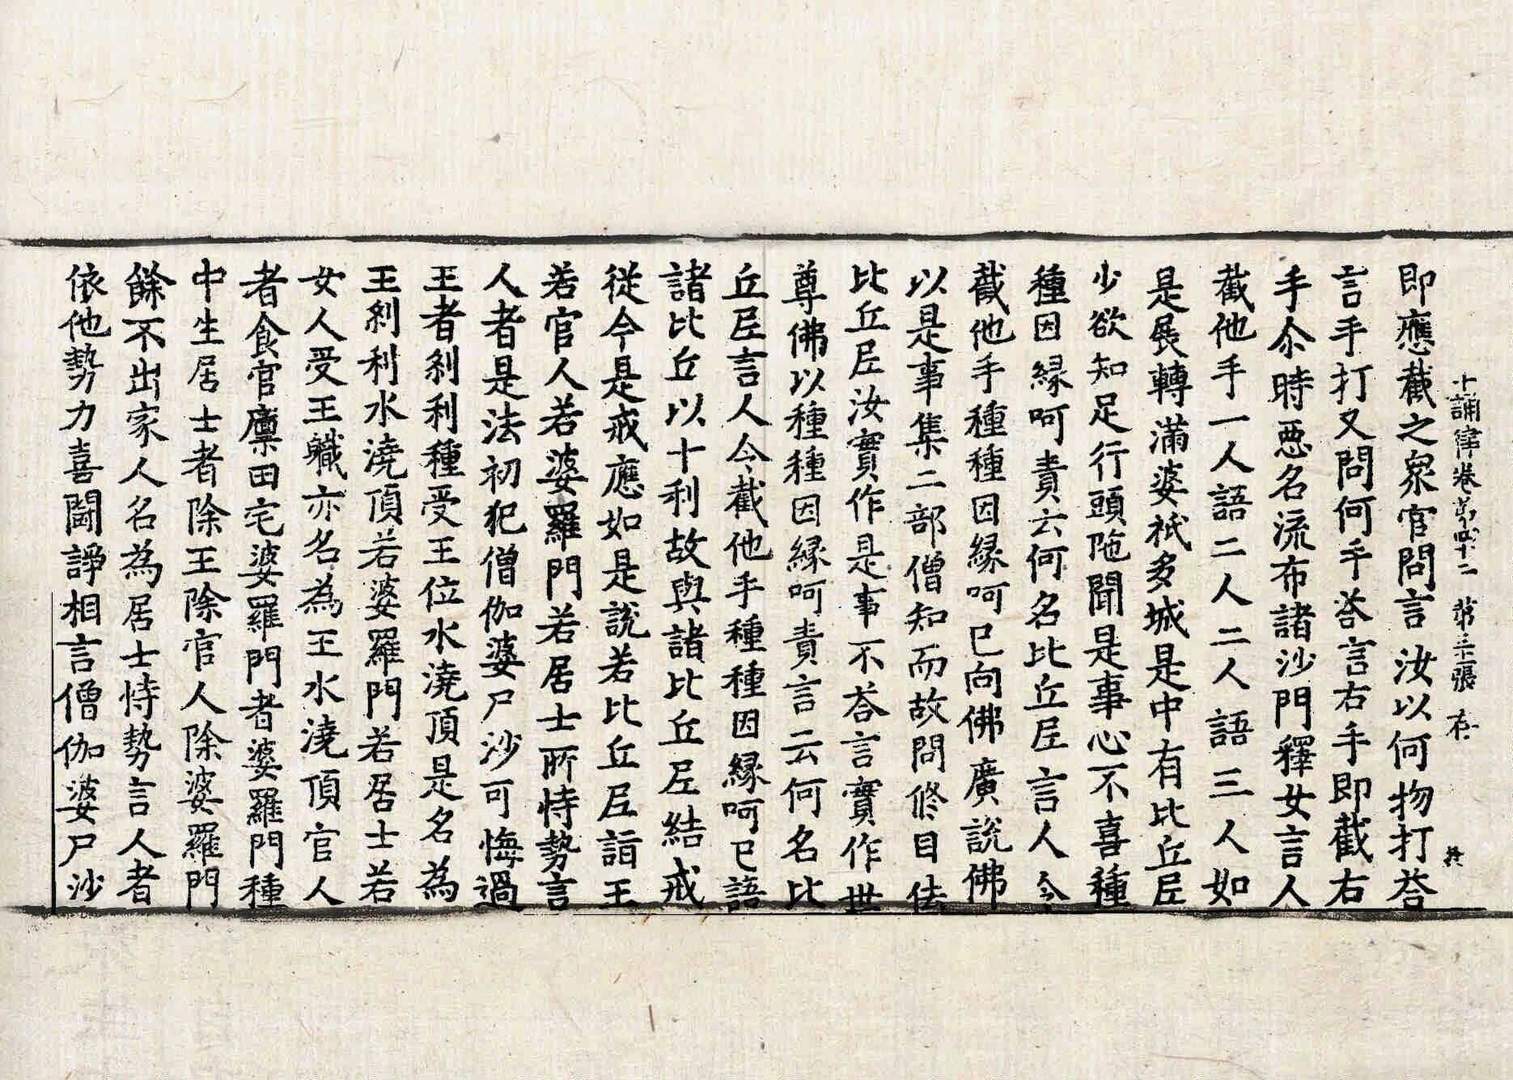 十誦律卷第四十二 第三張 存
即應截之衆官問言汝以何物打荅
言手打又問何手荅言右手即截右
手尒時惡名流布諸沙門釋女言人
截他手一人語二人二人語三人如
是展轉滿婆祇多城是中有比丘尼
少欲知足行頭陁聞是事心不喜種
種因緣呵責云何名比丘尼言人令
截他手種種因緣呵已向佛廣說佛
以是事集二部僧知而故問修目佉
比丘尼汝實作是事不荅言實作世
尊佛以種種因緣呵責言云何名比
丘尼言人令截他手種種因緣呵已語
諸比丘以十利故與諸比丘尼結戒
從今是戒應如是說若比丘尼詣王
若官人若婆羅門若居士所恃勢言
人者是法初犯僧伽婆尸沙可悔過
王者刹利種受王位水澆頂是名為
王刹利水澆頂若婆羅門若居士若
女人受王職亦名為王水澆頂官人
者食官廩田宅婆羅門者婆羅門種
中生居士者除王除官人除婆羅門
餘不出家人名為居士恃勢言人者
依他勢力喜鬪諍相言僧伽婆尸沙